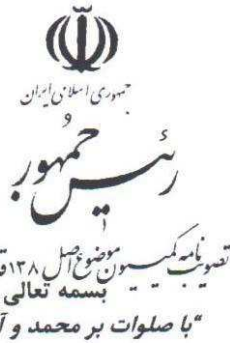 جمهوری اسلامی ایران
رئیس جمهور
تصویب نامه کمیسیون موضوع اصل ۱۳۸
بسمه تعالی
"با صلوات بر محمد و آ